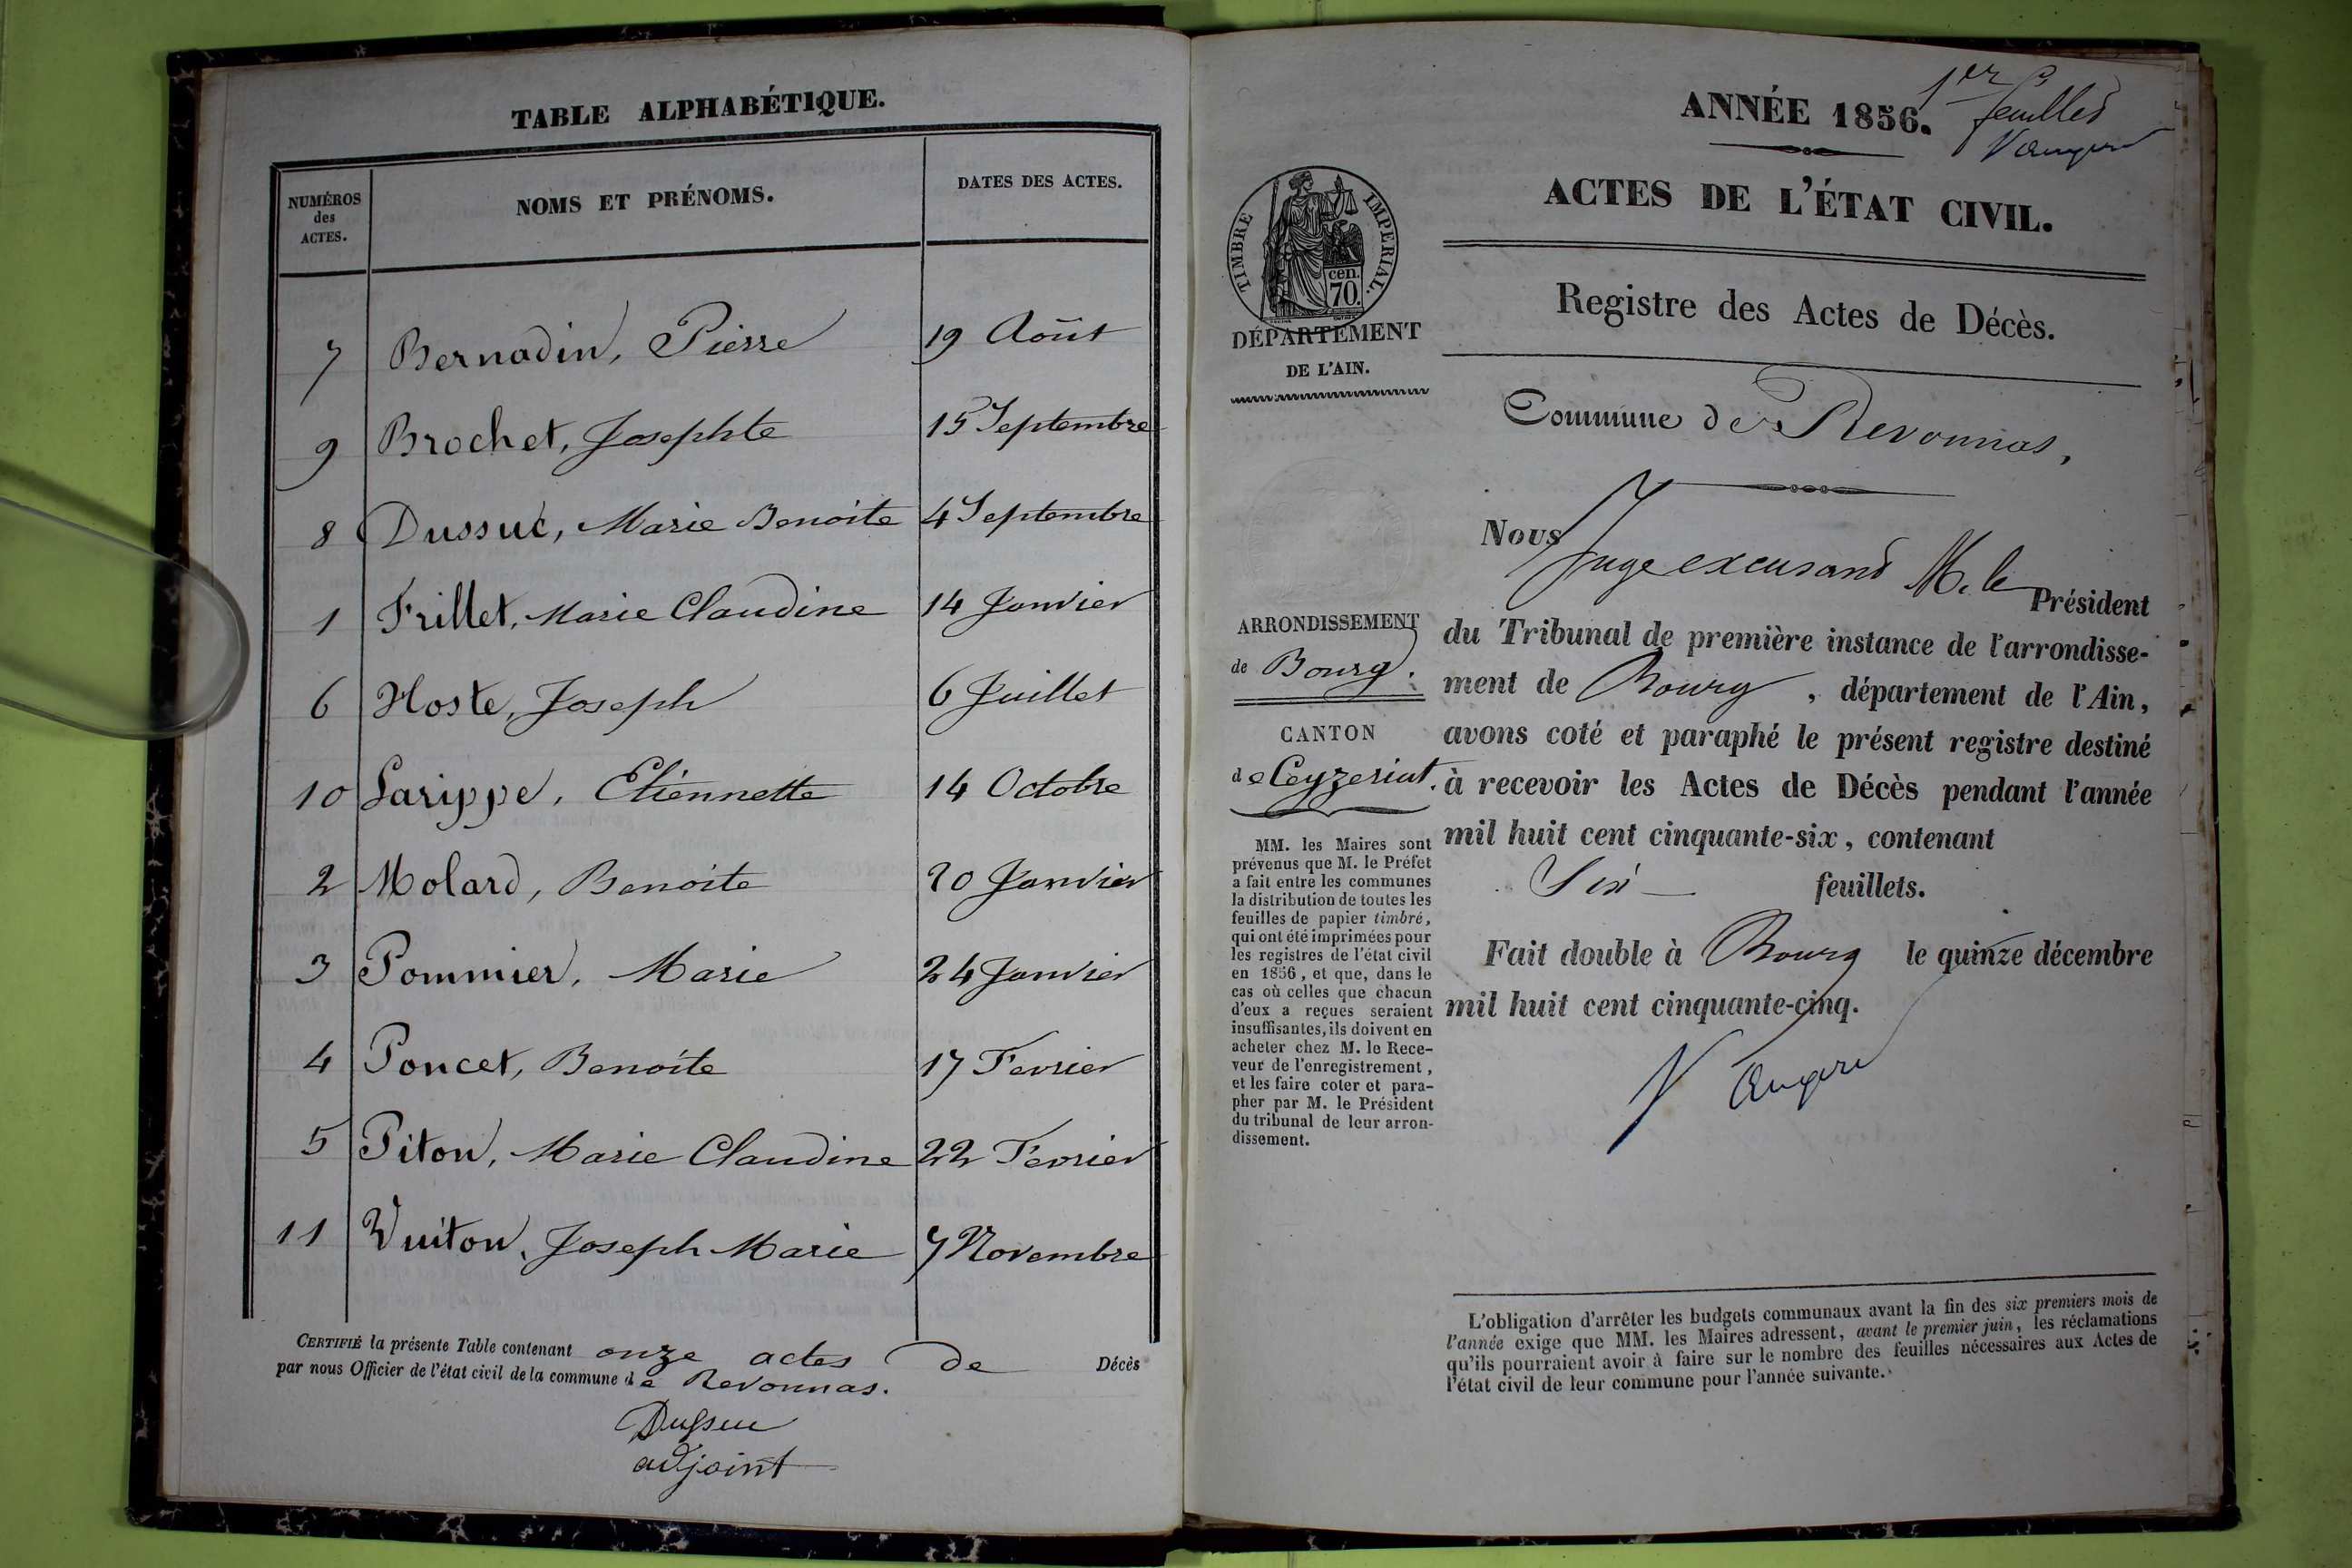 TABLE ALPHABÉTIQUE.
NUMÉROS
des
ACTES.
NOMS ET PRÉNOMS.
DATES DES ACTES.
7 Bernadin, Pierre 19 Août
9 Brochet, Josephte 15 Septembre
8 Dussuc, Marie Benoite 4 Septembre
1 Frillet, Marie Claudine 14 Janvier
6 Hoste, Joseph 6 Juillet
10 Larippe, Etiennette 14 Octobre
2 Molard, Benoite 20 Janvier
3 Pommier, Marie 24 Janvier
4 Poncet, Benoite 17 Fevrier
5 Piton, Marie Claudine 22 Fevrier
11 Vuiton, Joseph Marie 7 Novembre
CERTIFIÉ la présente Table contenant onze actes de Décès
par nous Officier de l'état civil de la commune de Revonnas.
Dussuc
adjoint
1er feuillet
ANNÉE 1856.
ACTES DE L'ÉTAT CIVIL.
Registre des Actes de Décès.
TIMBRE IMPERIAL.
cen.
70.
DÉPARTEMENT
DE L'AIN.
Commune de Revonnas,
ARRONDISSEMENT
de Bourg.
CANTON
de Ceyzeriat.
MM. les Maires sont
prévenus que M. le Préfet
a fait entre les communes
la distribution de toutes les
feuilles de papier timbré,
qui ont été imprimées pour
les registres de l'état civil
en 1856, et que, dans le
cas où celles que chacun
d'eux a reçues seraient
insuffisantes, ils doivent en
acheter chez M. le Rece-
veur de l'enregistrement,
et les faire coter et para-
pher par M. le Président
du tribunal de leur arron-
dissement.
Nous Juge excusant M. le Président
du Tribunal de première instance de l'arrondisse-
ment de Bourg, département de l'Ain,
avons coté et paraphé le présent registre destiné
à recevoir les Actes de Décès pendant l'année
mil huit cent cinquante-six, contenant
Six feuillets.
Fait double à Bourg le quinze décembre
mil huit cent cinquante-cinq.
L'obligation d'arrêter les budgets communaux avant la fin des six premiers mois de
l'année exige que MM. les Maires adressent, avant le premier juin, les réclamations
qu'ils pourraient avoir à faire sur le nombre des feuilles nécessaires aux Actes de
l'état civil de leur commune pour l'année suivante.